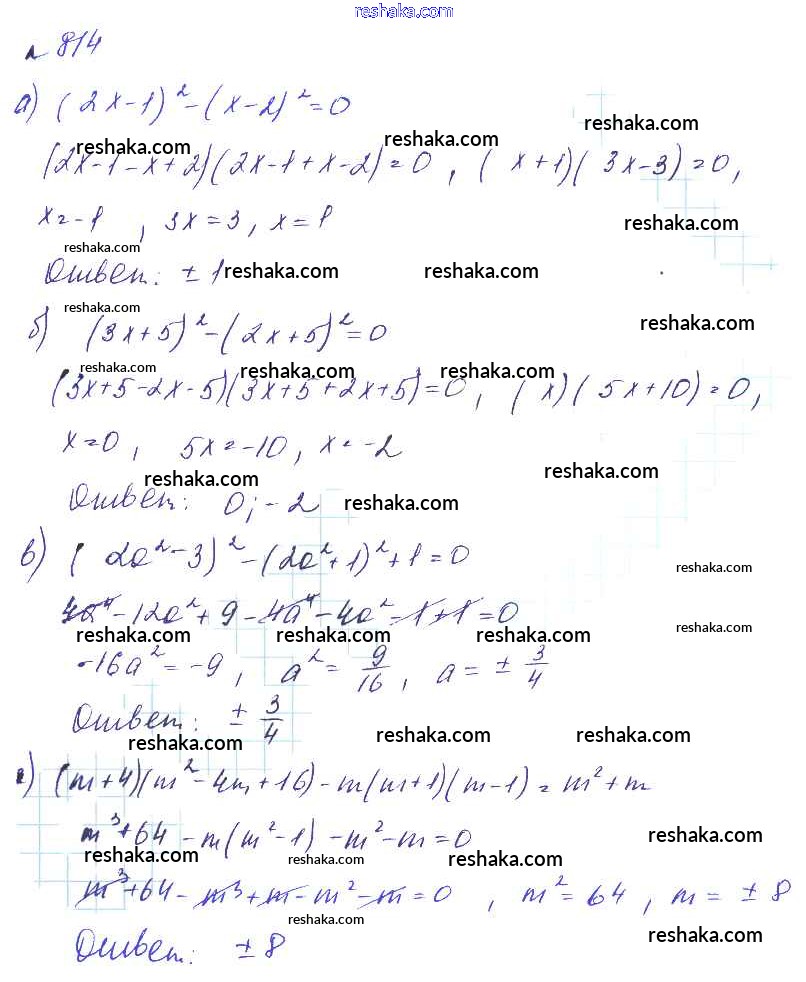 reshaka.com
№ 814
а) (2x-1)² - (x-2)² = 0
reshaka.com reshaka.com reshaka.com
(2x-1-x+2)(2x-1+x-2) = 0, (x+1)(3x-3) = 0,
x = -1, 3x = 3, x = 1 reshaka.com
reshaka.com
Ответ: ± 1 reshaka.com reshaka.com
reshaka.com
б) (3x+5)² - (2x+5)² = 0 reshaka.com
reshaka.com reshaka.com reshaka.com
(3x+5-2x-5)(3x+5+2x+5) = 0, (x)(5x+10) = 0,
x = 0, 5x = -10, x = -2
reshaka.com reshaka.com
Ответ: 0; -2 reshaka.com
в) (2a²-3)² - (2a²+1)² + 1 = 0 reshaka.com
4a⁴ - 12a² + 9 - 4a⁴ - 4a² - 1 + 1 = 0
reshaka.com reshaka.com reshaka.com reshaka.com
-16a² = -9, a² = 9/16, a = ± 3/4
Ответ: ± 3/4
reshaka.com reshaka.com reshaka.com
г) (m+4)(m²-4m+16) - m(m+1)(m-1) = m²+m
m³+64 - m(m²-1) - m² - m = 0 reshaka.com
reshaka.com reshaka.com reshaka.com
m³+64 - m³ + m - m² - m = 0, m² = 64, m = ± 8
reshaka.com
Ответ: ± 8 reshaka.com